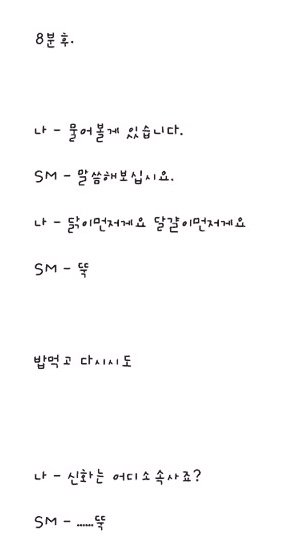 8분후.
나 - 물어볼게 있습니다.
SM - 말씀해보십시요.
나 - 닭이먼저게요 달걀이먼저게요
SM - 뚝
밥먹고 다시시도
나 - 신화는 어디소속사죠?
SM - ......뚝